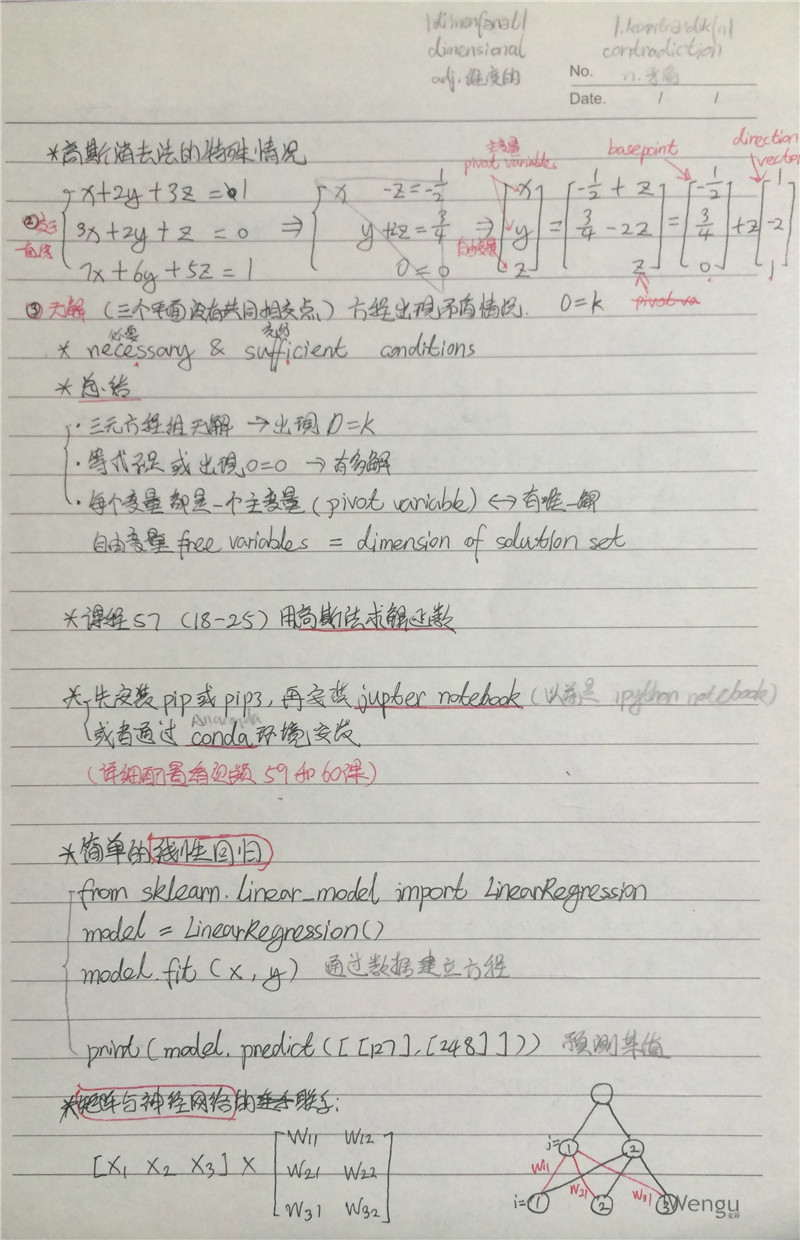 dimensional
adj. 维度的
contradiction
n. 矛盾
No.
Date. / /
*高斯消去法的特殊情况
主变量
pivot variables
basepoint
direction vector
x+2y+3z=1
3x+2y+z=0
7x+6y+5z=1
⇒ x -z=-1/2
y+2z=3/4
0=0
⇒ [x y z] = [-1/2+z 3/4-2z z] = [-1/2 3/4 0] + z[1 -2 1]
自由变量
③无解 (三个平面没有共同相交点) 方程出现矛盾情况. 0=k
必要 充分
* necessary & sufficient conditions
*总结
·三元方程组无解 → 出现0=k
·等式不足 或 出现0=0 → 有多解
·每个变量都是一个主变量(pivot variable) ↔ 有唯一解
自由变量 free variables = dimension of solution set
*课程57 (18-25) 用高斯法求解函数
*先安装pip或pip3, 再安装jupter notebook (以前是 ipython notebook)
Anaconda
或者通过conda环境安装
(详细配置看视频59和60课)
*简单的线性回归
from sklearn.linear_model import LinearRegression
model = LinearRegression()
model.fit (x, y) 通过数据建立方程
print(model.predict([[127],[248]])) 预测某值
*矩阵与神经网络的联系:
[X1 X2 X3] × [W11 W12
W21 W22
W31 W32]
j= 1 2
W11 W21 W31
i= 1 2 3
Wengu